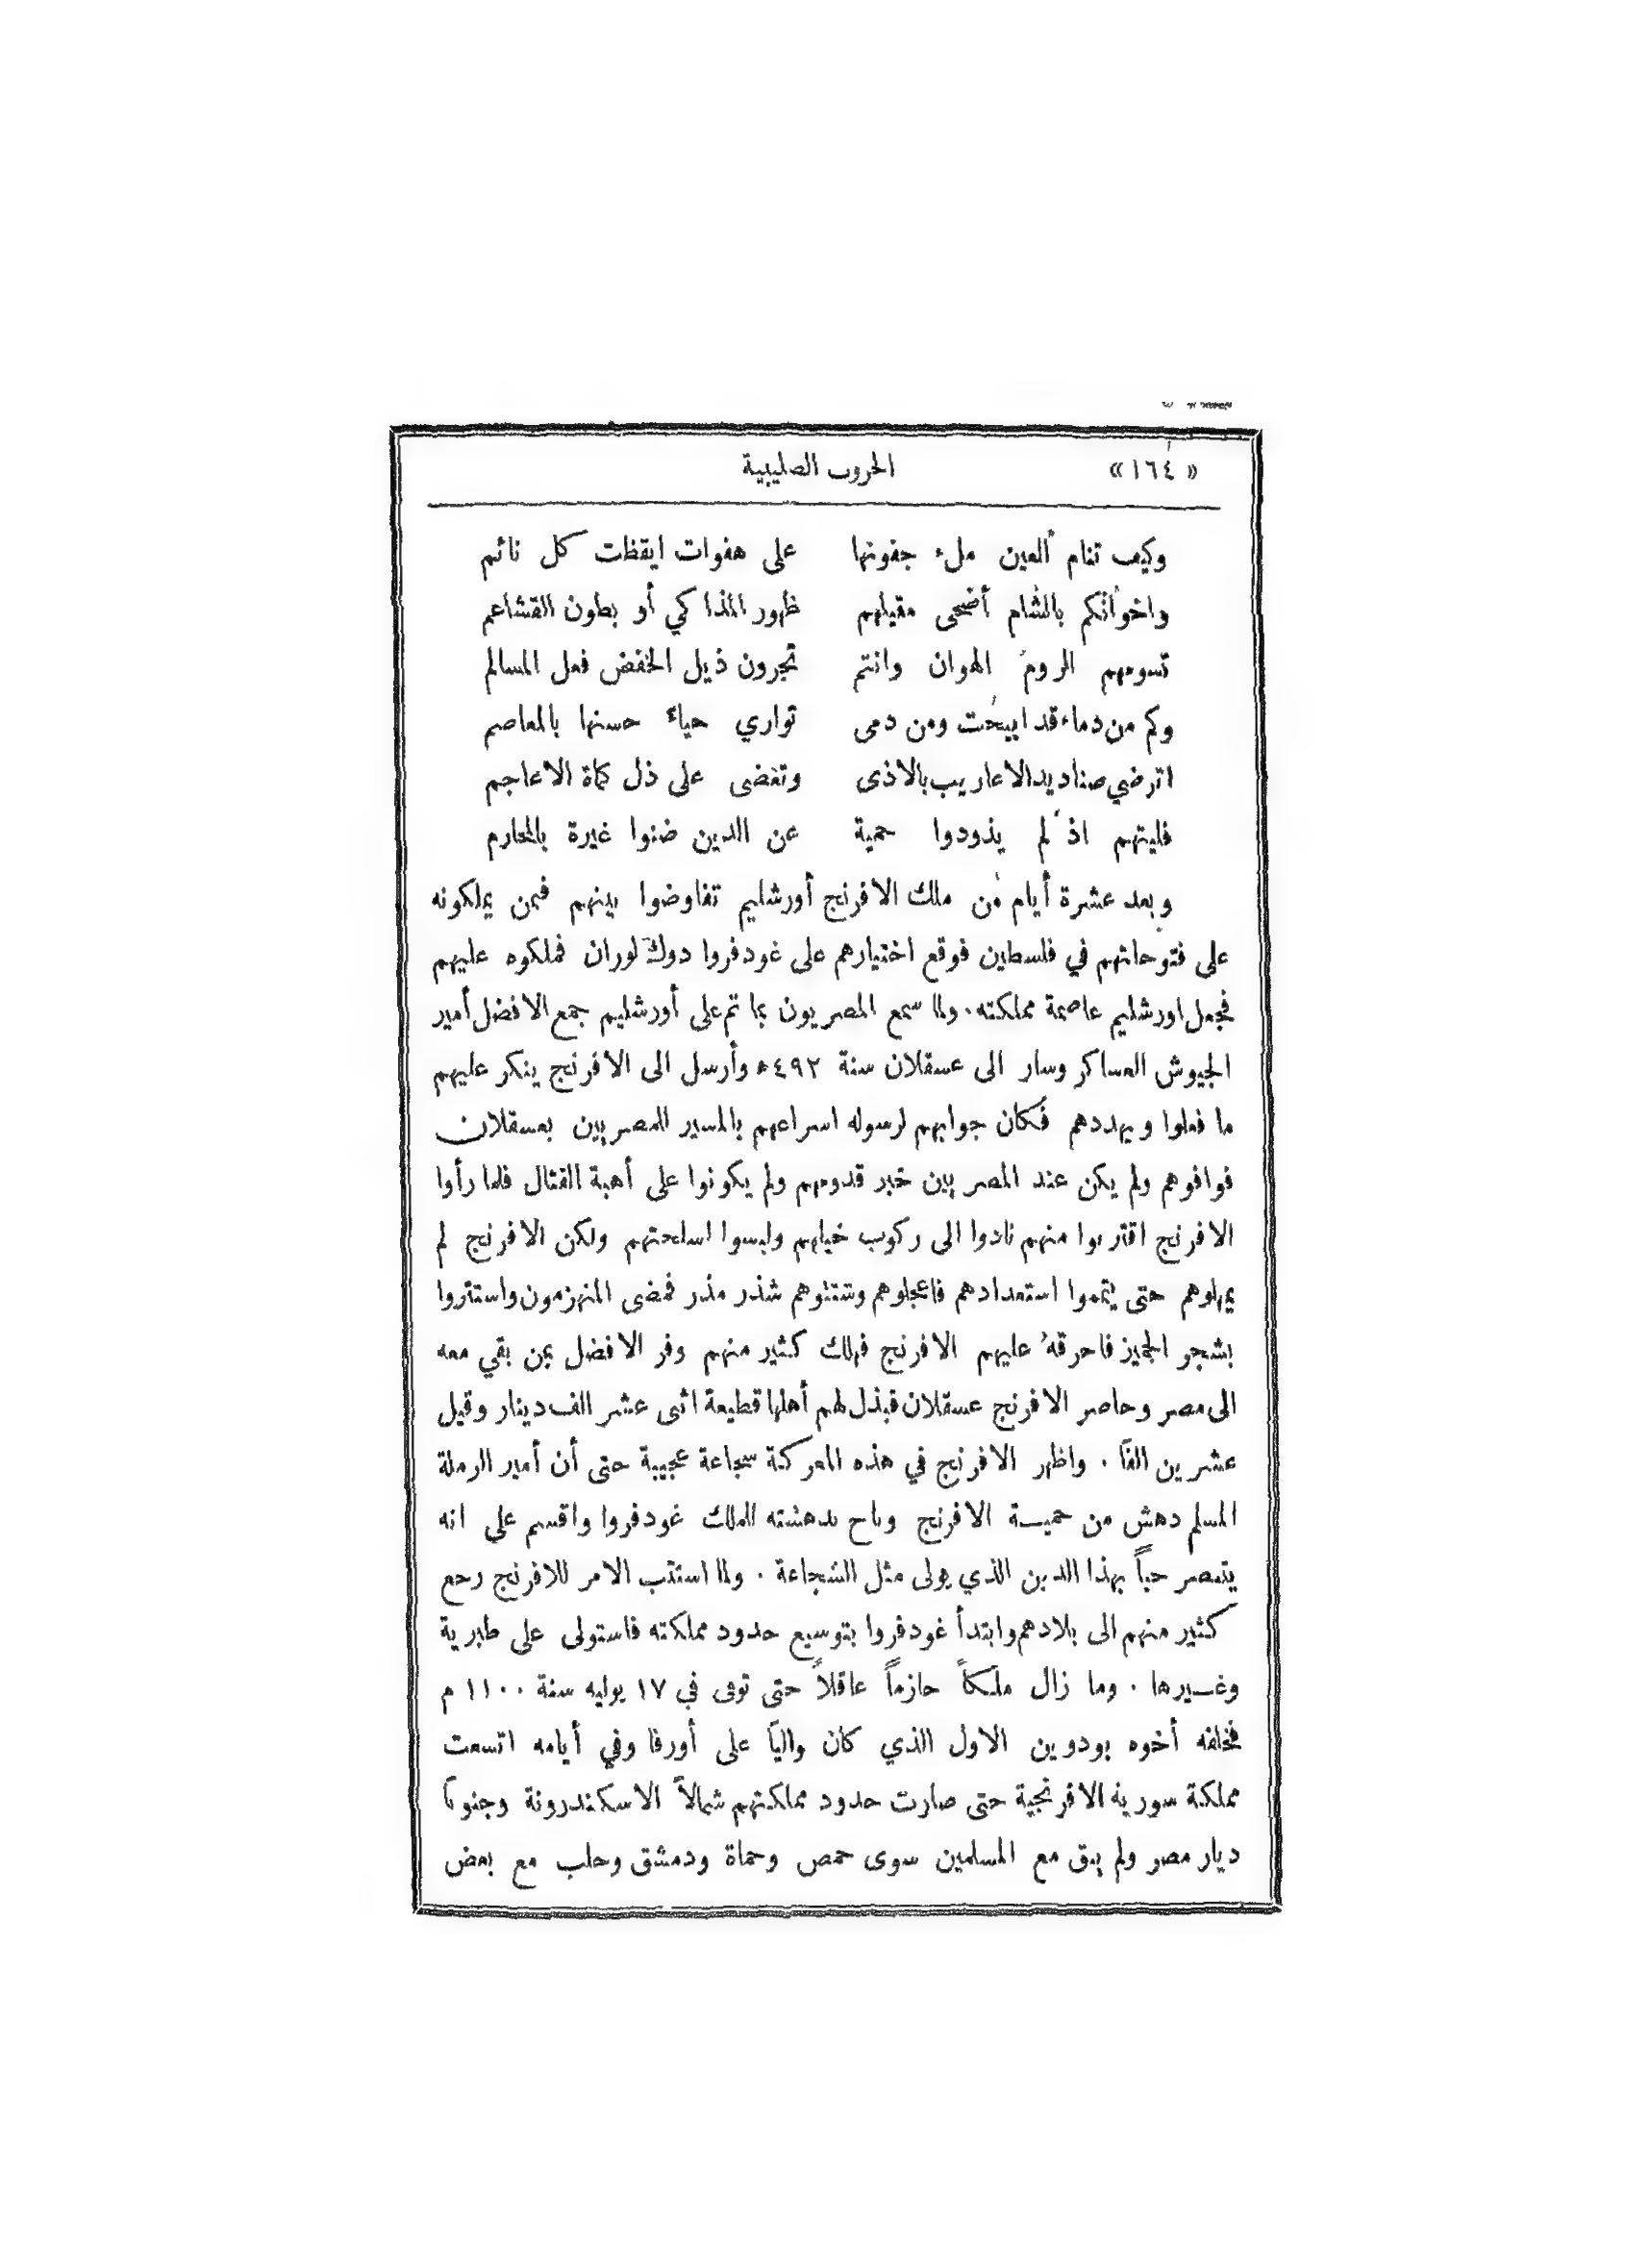 «١٦٤» الحروب الصليبية
وكيف تنام العين ملء جفونها على هفوات ايقظت كل نائم
واخوانكم بالشام أضحى مقيلهم ظهور المذاكي أو بطون القشاعم
تسومهم الروم الهوان وانتم تجرون ذيل الخفض فعل المسالم
وكم من دماء قد ابيحت ومن دمى تواري حياء حسنها بالمعاصم
اترضي صناديد الاعاريب بالاذى وتغضى على ذل كماة الاعاجم
فليتهم اذ لم يذودوا حمية عن الدين ضنوا غيرة بالمحارم
وبعد عشرة أيام من ملك الافرنج أورشليم تفاوضوا بينهم فيمن يملكونه
على فتوحاتهم في فلسطين فوقع اختيارهم على غودفروا دوك لوران فملكوه عليهم
فجعل اورشليم عاصمة مملكته. ولما سمع المصريون بما تم على أورشليم جمع الافضل أمير
الجيوش العساكر وسار الى عسقلان سنة ٤٩٢ﻫ وأرسل الى الافرنج ينكر عليهم
ما فعلوا ويهددهم فكان جوابهم لرسوله اسراعهم بالمسير للمصريين بعسقلان
فوافوهم ولم يكن عند المصريين خبر قدومهم ولم يكونوا على أهبة القتال فلما رأوا
الافرنج اقتربوا منهم نادوا الى ركوب خيلهم ولبسوا اسلحتهم ولكن الافرنج لم
يمهلوهم حتى يتمموا استعدادهم فاعجلوهم وشتتوهم شذر مذر فمضى المنهزمون واستتروا
بشجر الجميز فاحرقهُ عليهم الافرنج فهلك كثير منهم وفر الافضل بمن بقي معه
الى مصر وحاصر الافرنج عسقلان فبذل لهم أهلها قطيعة اثنى عشر الف دينار وقيل
عشرين الفاً . واظهر الافرنج في هذه المعركة شجاعة عجيبة حتى أن أمير الرملة
المسلم دهش من حميسة الافرنج وباح بدهشته للملك غودفروا واقسم على انه
يتنصر حباً بهذا الدين الذي يولى مثل الشجاعة . ولما استتب الامر للافرنج رجع
كثير منهم الى بلادهم وابتدأ غودفروا بتوسيع حدود مملكته فاستولى على طبرية
وغيرها . وما زال ملكاً حازماً عاقلاً حتى توفى في ١٧ يوليه سنة ١١٠٠ م
فخلفه أخوه بودوين الاول الذي كان والياً على أورفا وفي أيامه اتسعت
مملكة سورية الافرنجية حتى صارت حدود مملكتهم شمالاً الاسكندرونة وجنوباً
ديار مصر ولم يبق مع المسلمين سوى حمص وحماة ودمشق وحلب مع بعض